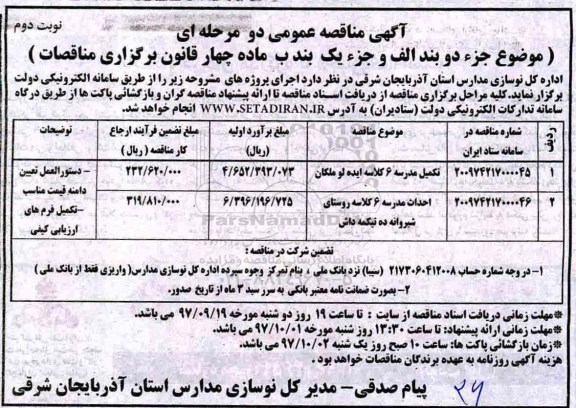 آگهی مناقصه عمومی دو مرحله ای
نوبت دوم
( موضوع جزء دو بند الف و جزء یک بند ب ماده چهار قانون برگزاری مناقصات )
اداره کل نوسازی مدارس استان آذربایجان شرقی در نظر دارد اجرای پروژه های مشروحه زیر را از طریق سامانه الکترونیکی دولت
برگزار نماید. کلیه مراحل برگزاری مناقصه از دریافت اسناد مناقصه تا ارائه پیشنهاد مناقصه گران و بازگشائی پاکت ها از طریق درگاه
سامانه تدارکات الکترونیکی دولت (ستادیران) به آدرس WWW.SETADIRAN.IR انجام خواهد شد.
ردیف | شماره مناقصه در سامانه ستاد ایران | موضوع مناقصه | مبلغ برآورد اولیه (ریال) | مبلغ تضمین فرآیند ارجاع کار مناقصه ( ریال ) | توضیحات
۱ | ۲۰۰۹۷۴۲۱۷۰۰۰۰۴۵ | تکمیل مدرسه ۶ کلاسه ایده لو ملکان | ۴/۶۵۲/۳۹۳/۰۷۳ | ۲۳۲/۶۲۰/۰۰۰ | - دستورالعمل تعیین دامنه قیمت مناسب
۲ | ۲۰۰۹۷۴۲۱۷۰۰۰۰۴۶ | احداث مدرسه ۶ کلاسه روستای شیروانه ده تیکمه داش | ۶/۳۹۶/۱۹۶/۷۲۵ | ۳۱۹/۸۱۰/۰۰۰ | -تکمیل فرم های ارزیابی کیفی
تضمین شرکت در مناقصه :
۱- در وجه شماره حساب ۲۱۷۳۰۶۰۴۱۲۰۰۸ (سیبا) نزد بانک ملی ، بنام تمرکز وجوه سپرده اداره کل نوسازی مدارس( واریزی فقط از بانک ملی )
۲- بصورت ضمانت نامه معتبر بانکی به سررسید ۳ ماه از تاریخ صدور.
*مهلت زمانی دریافت اسناد مناقصه از سایت : تا ساعت ۱۹ روز دو شنبه مورخه ۹۷/۰۹/۱۹ می باشد.
*مهلت زمانی ارائه پیشنهاد: تا ساعت ۱۳:۳۰ روز شنبه مورخه ۹۷/۱۰/۰۱ می باشد.
*زمان بازگشائی پاکت ها: ساعت ۱۰ صبح روز یک شنبه ۹۷/۱۰/۰۲ می باشد.
هزینه آگهی روزنامه به عهده برندگان مناقصات خواهد بود .
پیام صدقی – مدیر کل نوسازی مدارس استان آذربایجان شرقی